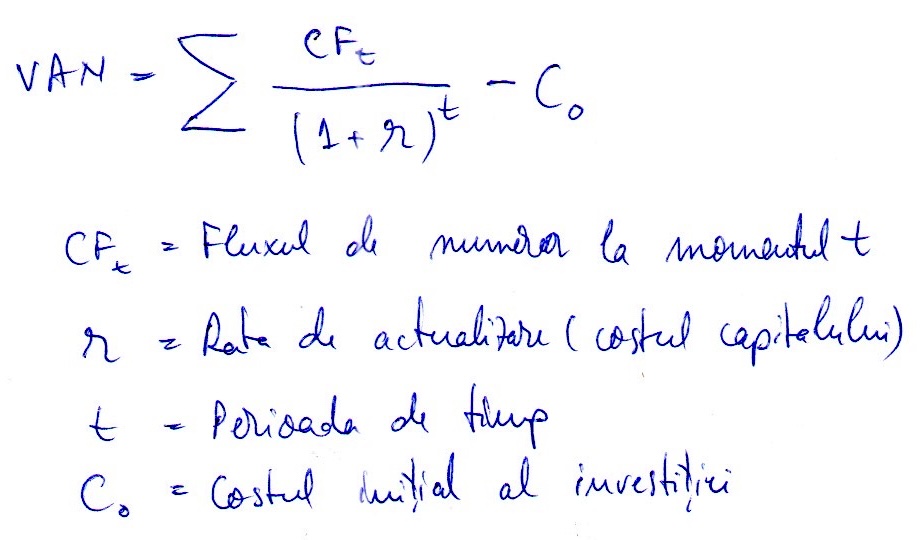 VAN = ∑ CFₜ / (1 + r)ᵗ − C₀
CFₜ = Fluxul de numerar la momentul t
r = Rata de actualizare (costul capitalului)
t = Perioada de timp
C₀ = Costul inițial al investiției